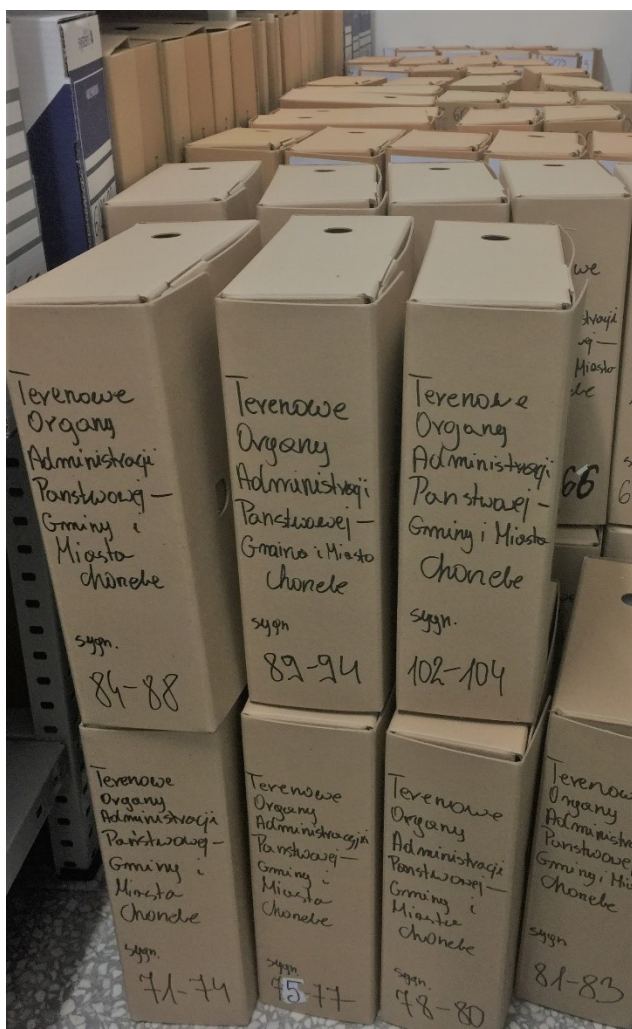 Terenowe
Organy
Administracji
Państwowej -
Gminy i
Miasta
Chorzele
sygn.
84-88
Terenowe
Organy
Administracji
Państwowej -
Gmina i Miasto
Chorzele
sygn
89-94
Terenowe
Organy
Administracji
Państwowej -
Gminy i Miasta
Chorzele
sygn.
102-104
66
Terenowe
Organy
Administracji
Państwowej -
Gminy i
Miasta
Chorzele
sygn.
71-74
Terenowe
Organy
Administracji
Państwowej -
Gminy i
Miasta
Chorzele
sygn
75-77
Terenowe
Organy
Administracji
Państwowej -
Gminy i
Miasta
Chorzele
sygn.
78-80
Organy
Chorzele
sygn
81-83